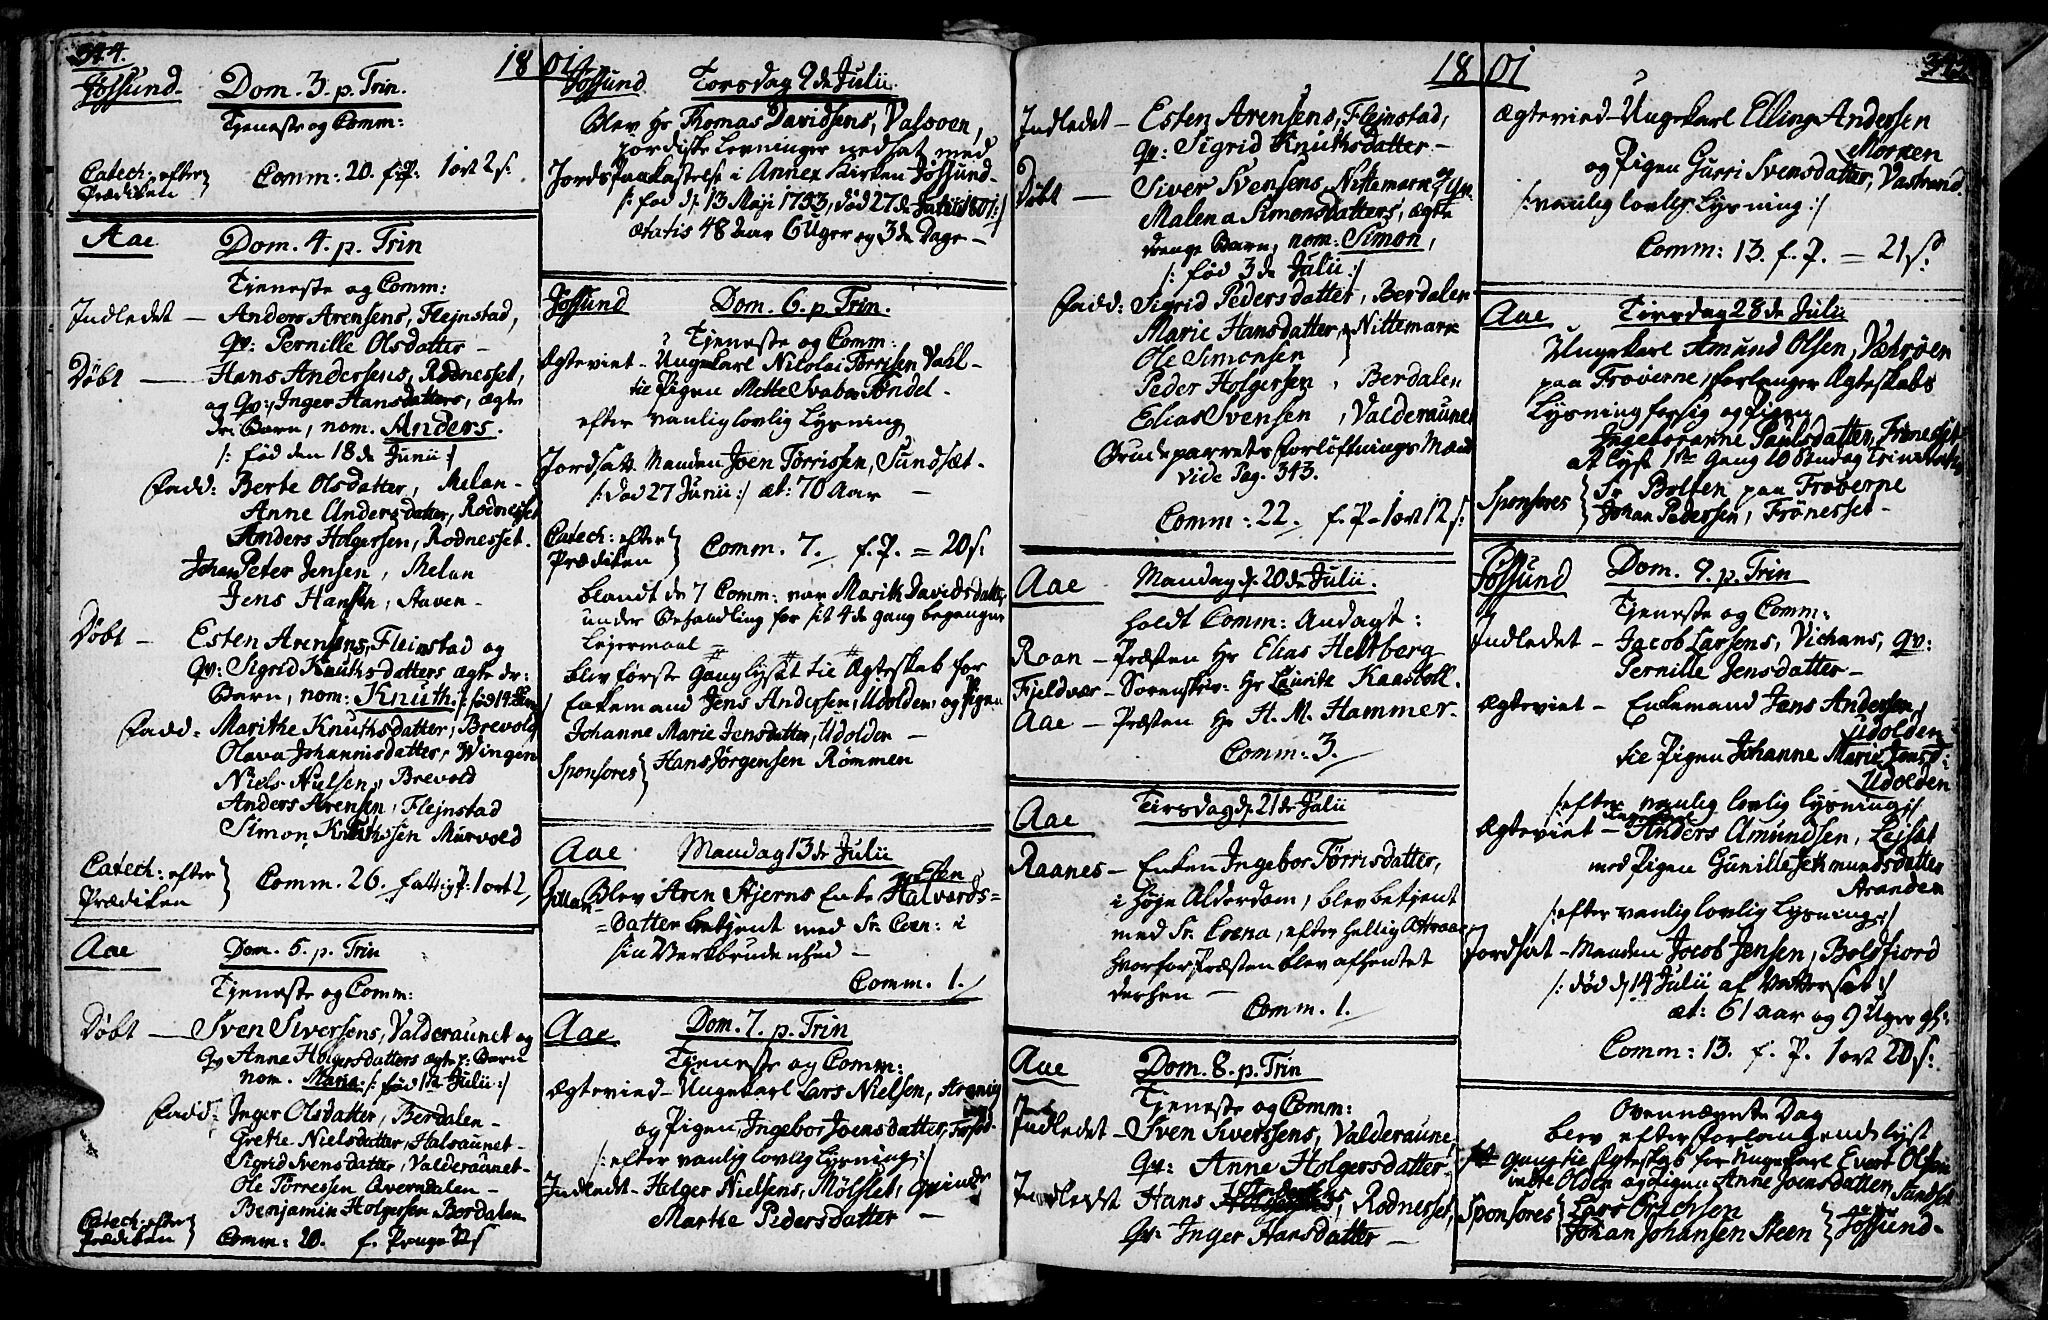 344.
1801.
Jøssund. Dom. 3. p. Trin.
Tjeneste og Comm:
Catech: efter Prædiken } Comm: 20. f. P. 1 ort 2 s.
Aae Dom. 4. p. Trin
Tjeneste og Comm:
Indledet – Anders Arensens, Flejnstad,
Qv: Pernille Olsdatter –
Døbt – Hans Andersens, Rødnesset,
og Qv: Inger Hansdatters, ægte
Barn, nom. Anders.
/: fød den 18de Junii :/
Fadd: Berte Olsdatter, Melan –
Anne Andersdatter, Rødnesset
Anders Holgersen, Rødnesset.
Johan Peter Jensen, Melan
Jens Hansen, Aaven –
Døbt – Esten Arensens, Flejnstad og
Qv: Sigrid Knuthsdatters ægte dr:
Barn, nom: Knuth.
Fadd: Marithe Knuthsdatter, Brevold
Olava Johannisdatter, Wingen
Niels Hulsen, Brevold
Anders Arensen, Flejnstad
Simon Knuthssen Murvold
Catech: efter Prædiken } Comm. 26. fattig P: 1 ort 2
Aae Dom. 5. p. Trin
Tjeneste og Comm:
Døbt – Sven Siversens, Valderaunet og
Qv Anne Holgersdatters ægte p. Barn
nom. Maria /: fød 1ste Julii :/
Fadd: Inger Olsdatter, Berdalen –
Grethe Nielsdatter, Halsaunet –
Sigrid Svensdatter, Valderaunet –
Ole Tørressen Averndalen –
Benjamin Holgersen Berdalen
Catech: efter Prædiken } Comm: 20. f. Penge
Jøssund Torsdag 9de Julii
Blev Hr Thomas Davidsens, Valsøen,
jordiske Levninger nedsat med
Jords Paakastelse i Annex Kirken Jøssund –
/: fød d: 13 Maji 1753, død 27de Junii 1801 :/
ætatis 48 Aar 6 Uger og 3de Dage –
Jøssund Dom. 6. p. Trin.
Tjeneste og Comm:
Ægteviet – Ungekarl Nicolai Tørrisen Vahl –
til Pigen Mette Svabo Søndel –
efter vanlig lovlig Lysning
Jordsatt Manden Joen Tørrissen, Sundsæt –
/: død 27 Junii :/ æt: 70 Aar –
Catech: efter Prædiken } Comm. 7. f. P. = 20 s:
blandt de 7 Comm: var Marith Davidsdatter,
under Behandling for sit 4de gang begangne
Lejermaal –
blev første Gang lyset til Ægteskab for
Enkemand Jens Andersen, Udolden, og Pigen
Johanne Marie Jensdatter, Udolden –
Sponsores } Hans Jørgensen Rømmen
Aae Mandag 13de Julii
Blev Aren Stjerns Enke Esten Halvords=
=datter betjent med Sr. Coen: i
sin Verkbrudenhed –
Comm. 1.
Aae Dom. 7. p. Trin
Tjeneste og Comm:
Ægtevied – Ungekarl Lars Nielsen,
og Pigen, Ingebor Joensdatter,
/: efter vanlig lovlig Lysning :/
Indledet – Holger Nielsens, Mølslet, quinde
Marthe Pedersdatter –
1801
Indledet – Esten Arensens, Flejnstad,
qv: Sigrid Knuthsdatter –
Døbt – Siver Svensens, Nittemark og Qv:
Malena Simonsdatters, ægte
drenge Barn, nom: Simon,
/: fød 3de Julii :/
Fadd: Sigrid Pedersdatter, Berdalen
Marie Hansdatter, Nittemark
Ole Simonsen
Peder Holgersen, Berdalen
Elias Svensen, Valderaunet
Brudeparrets Forløftnings Mænd
vide Pag. 343.
Comm: 22. f. P – 1 ort 12 s:
Aae Mandag d. 20de Julii.
holdt Comm: Andagt:
Roan – Præsten Hr Elias Heltberg
Fjeldvær – Sorenskriv: Hr Lauritz Kaasbøll.
Aae – Præsten Hr H. M. Hammer.
Comm: 3.
Aae Tirsdag d. 21de Julii
Raanes – Enken Ingebor Tørrisdatter,
i høje Alderdom, blev betjent
med Sr. Coena, efter hellig Attraa,
hvorfor Præsten blev afhentet
derhen –
Comm. 1.
Aae Dom. 8. p. Trin
Tjeneste og Comm:
Indledet – Sven Siverssens, Valderaune,
Qv: Anne Holgersdatter –
Indledet Hans Rødnesset,
Qv: Inger Hansdatter –
Ægtevied – Ungekarl Elling Andersen
Mornen
og Pigen Gurri Svensdatter, Vastrand.
/: vanlig lovlig Lysning :/
Comm: 13. f. P. = 21 s.
Aae Tirsdag 28de Julii
Ungekarl Amund Olsen, Vætrøen
paa Frøverne, forlanger Ægteskabs
Lysning for sig og Pigen
Ingeboranne Paulsdatter, Frønesset
at lyse 1ste Gang 10 Søndag Trinitatis
Sponsores } Sr Bolsen paa Frøverne
Johan Pedersen, Frønesset –
Jøssund Dom. 9. p. Trin
Tjeneste og Comm:
Indledet – Jacob Larsens, Vichans, qv:
Pernille Jensdatter –
Ægteviet – Enkemand Jens Andersen,
Udolden
til Pigen Johanne Marie Jensd:
Udolden
/: efter vanlig lovlig Lysning :/
Ægteviet – Ungekarl Anders Amundsen, Lejsæt
med Pigen Gunille
Aranden
/: efter vanlig lovlig Lysning :/
Jordsat – Manden Jacob Jensen, Boldfiord
/: død d. 14 Julii af Vattersot :/
æt: 61 aar og 9 Uger
Comm: 13. f. P. 1 ort 20 s:
Ovennævnte Dag
blev efter forlangende lyst
gang til Ægteskab for Ungekarl Evert Olsen
og Pigen Anne Joensdatter, Sundsæt
Sponsores } Lars Erichsen
Johan Johansen Steen } Jøssund –